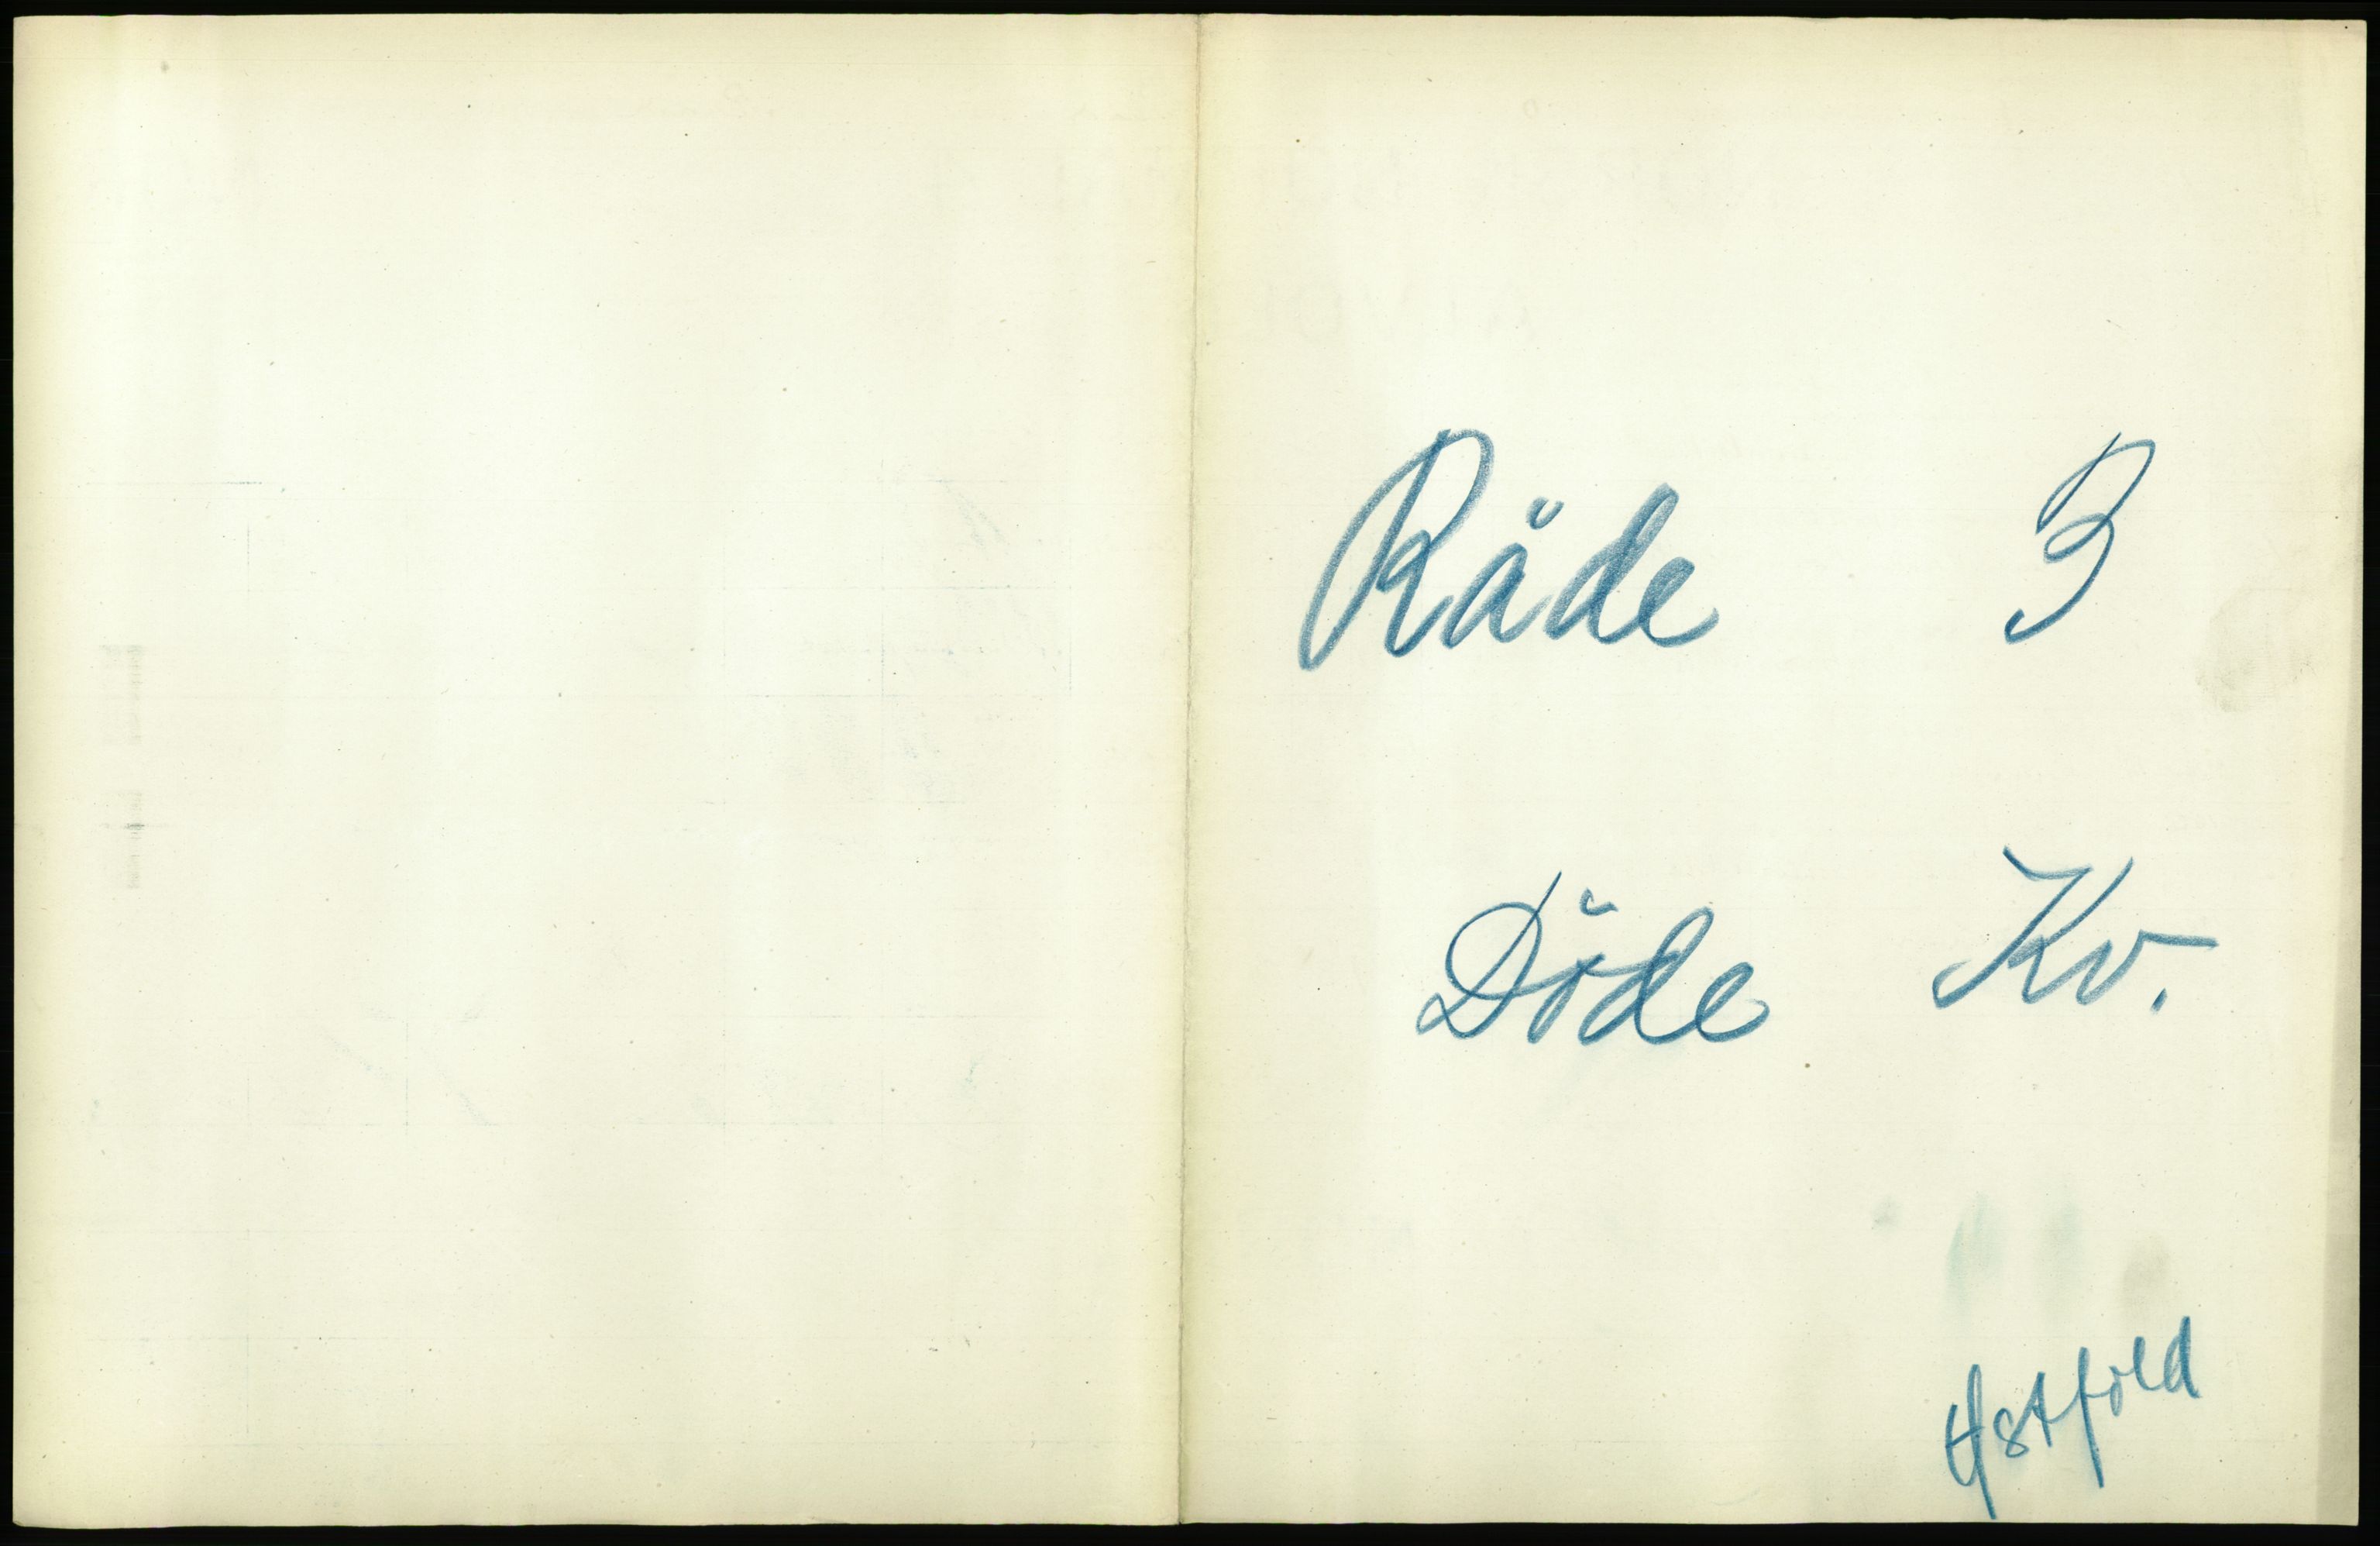 Råde 3
Döde Kv.
Østfold